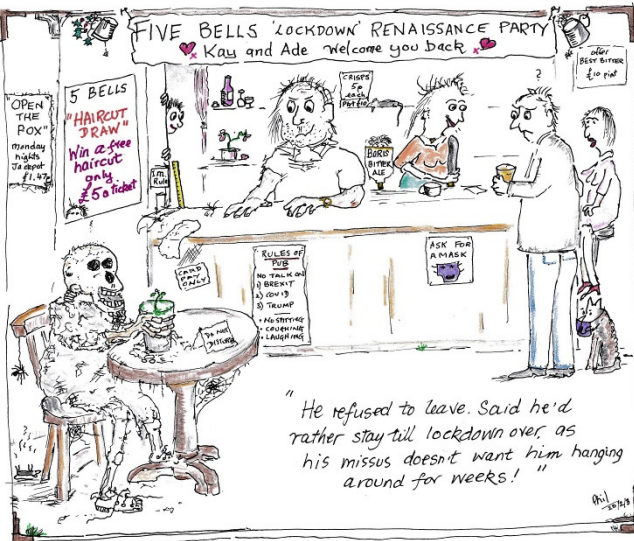 FIVE BELLS 'LOCKDOWN' RENAISSANCE PARTY
Kay and Ade Welcome you back
offer
BEST BITTER
£10 pint
"OPEN
THE
POX"
Monday
nights
Jackpot
£1.47p
5 BELLS
"HAIRCUT
DRAW"
Win a free
haircut
only
£5 a ticket
1m.
Rule
CRISPS
5p
each
BORIS
BITTER
ALE
?
CARD
PAY
ONLY
RULES OF
PUB
NO TALK ON
1) BREXIT
2) COVID
3) TRUMP
• NO SPITTING
• COUGHING
• LAUGHING
ASK FOR
A MASK
DO NOT
DISTURB
"He refused to leave. Said he'd
rather stay till lockdown over, as
his missus doesn't want him hanging
around for weeks!"
Phil